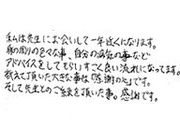 私は先生にお会いして一年近くになります。
身の周りの色々な事、自分の病気の事など
アドバイスをしてもらいすごく良い流れになってます。
教えて頂いた大きな事は「感謝の心」です。
そして先生とのご縁を頂いた事。感謝です。